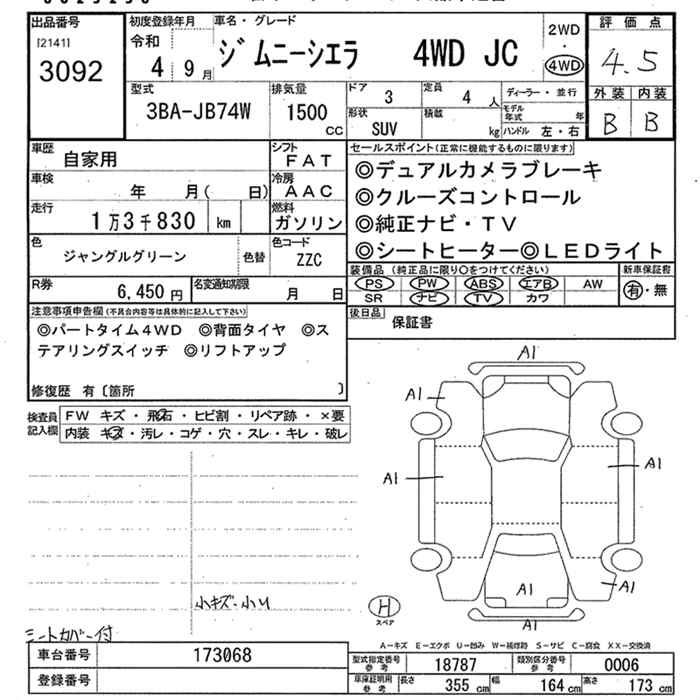 出品番号
[2141]
3092
初度登録年月
令和
4 9月
車名・グレード
ジムニーシエラ 4WD JC
2WD
・
4WD
評価点
4.5
外装 内装
B B
型式
3BA-JB74W
排気量
1500
CC
ドア
3
定員
4 人
形状
SUV
積載
kg
ディーラー・並行
モデル年式 年
ハンドル 左・右
車歴
自家用
シフト
FAT
車検
年 月( 日)
冷房
AAC
走行
1万3千830 km
燃料
ガソリン
色
ジャングルグリーン
色替
色コード
ZZC
R券
6,450 円
名変通知期限
月 日
セールスポイント(正常に機能するものに限ります)
◎デュアルカメラブレーキ
◎クルーズコントロール
◎純正ナビ・TV
◎シートヒーター◎LEDライト
装備品(純正品に限り○をつけてください)
PS PW ABS エアB AW
SR ナビ TV カワ
新車保証書
有・無
後日品
保証書
注意事項申告欄(不具合内容等は具体的に記入して下さい)
◎パートタイム4WD ◎背面タイヤ ◎ス
テアリングスイッチ ◎リフトアップ
修復歴 有〔箇所 〕
検査員
記入欄
FW キズ・飛石・ヒビ割・リペア跡・×要
内装 キズ・汚レ・コゲ・穴・スレ・キレ・破レ
小キズ・小U
シートカバー付
A1
A1
A1
A1
A1
A1
A1
H
スペア
A-キズ E-エクボ U-凹み W-補修跡 S-サビ C-腐食 XX-交換済
車台番号
173068
登録番号
型式指定番号
参考
18787
類別区分番号
参考
0006
車庫証明用
参考
長さ
355 cm
幅
164 cm
高さ
173 cm